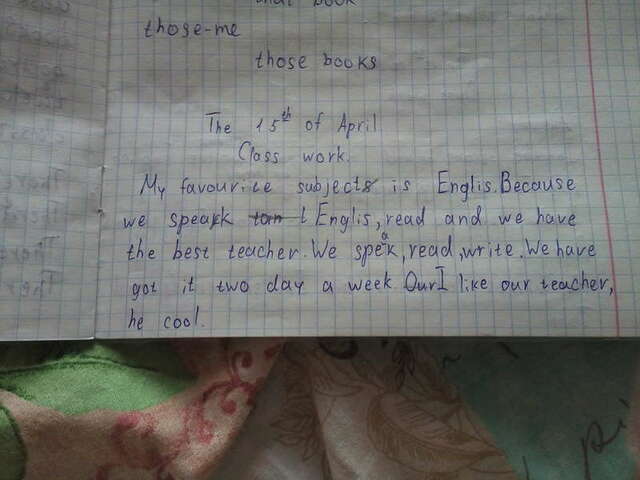 those-me
those books
The 15th of April
Class work.
My favourite subjects is Englis. Because
we speak Englis, read and we have
the best teacher. We speak, read, write. We have
got it two day a week. Our I like our teacher,
he cool.